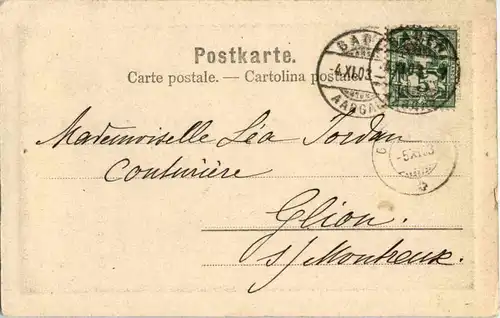 Postkarte.
Carte postale. — Cartolina postale.
BADEN
-4.XI.03
AARGAU
-5.XI.03
Mademoiselle Léa Jordan
Couturière
Glion.
s/ Montreux.